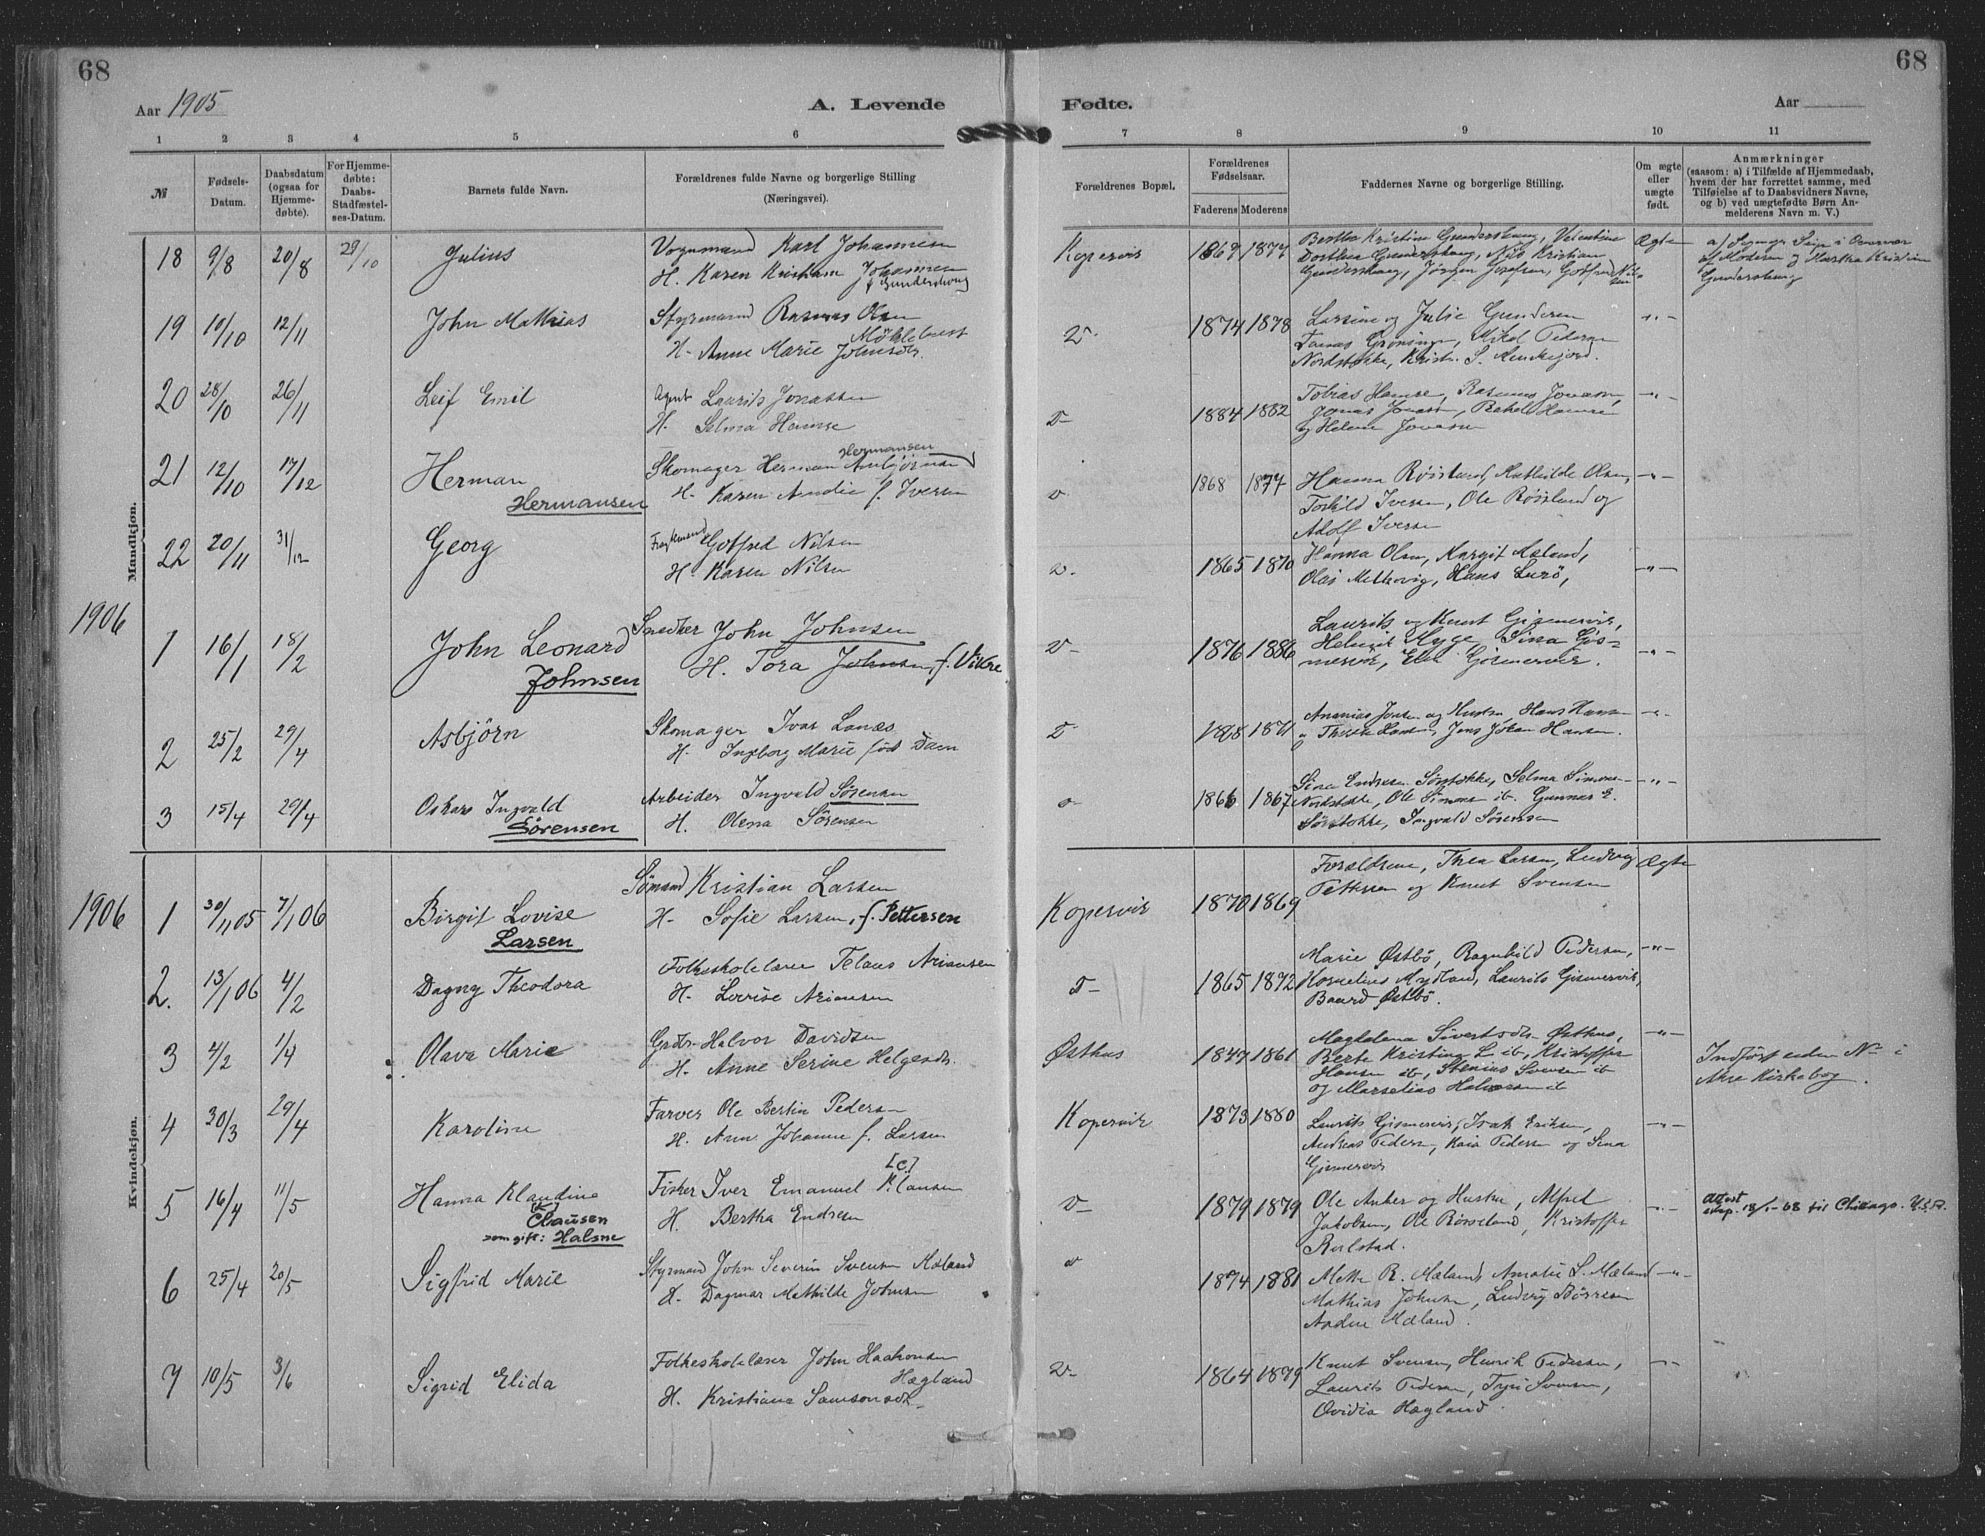 68
68
Aar 1905
A. Levende
Fødte.
Aar
1 2 3 4 5 6 7 8 9 10 11
№
Fødsels-
Datum.
Daabsdatum
(ogsaa for
Hjemme-
døbte).
For Hjemme-
døbte:
Daabs-
Stadfæstel-
ses-Datum.
Barnets fulde Navn.
Forældrenes fulde Navne og borgerlige Stilling
(Næringsvei).
Forældrenes Bopæl.
Forældrenes
Fødselsaar.
Faderens Moderens
Faddernes Navne og borgerlige Stilling.
Om ægte
eller
uægte
født.
Anmærkninger
(saasom: a) i Tilfælde af Hjemmedaab,
hvem der har forrettet samme, med
Tilføielse af to Daabsvidners Navne,
og b) ved uægtefødte Børn An-
melderens Navn m. V.)
Mandkjøn.
18 9/8 20/8 29/10 Julius
Vognmand Karl Johannesen
H. Karen Kristiane Johannesen
f Gundershaug
Kopervik 1867 1877
Berthe Kristine Gundershaug, Valentine
Dorthea Gundershaug, Nils Kristian
Gundershaug, Jørgen Josefsen, Gotfred Nil-
sen
Ægte
af Moderen og Martha Kristine
Gundershaug
19 10/10 12/11 John Mathias
Styrmand Rasmus Olsen
Møklebust
H. Anne Marie Johnsdtr.
D- 1874 1878
Larsine og Julie Gundersen
Grønsinge, Mikal Pedersen
Nordstokke, Krist. S.
-"-
20 28/10 26/11 Leif Emil
Agent Laurits Jonassen
H. Selma Hamse
D- 1884 1882
Tobias Hamse, Rasmus Jonassen,
Jonas Jonassen, Hamse
og Helene Jonassen
-"-
21 12/10 17/12 Herman
Hermansen
Hermansen
Skomager Herman
H. Karen Amalie f. Iversen
D 1868 1877
Hanna Røisland, Mathilde Olsen,
Torkild Iversen, Ole Røisland og
Adolf Iversen
-"-
22 20/11 31/12 Georg
Gotfred Nilsen
H. Karen Nilsen
D. 1865 1870
Hanna Olsen, Margit Mæland,
Olai Melkevig, Hans Lurø,
-"-
1906
1 16/1 18/2 John Leonard
Johnsen
Snedker John Johnsen
H. Tora Johnsen, f. Vikre
D- 1876 1886
Laurits og Knut Gismervik,
Helmik Myge, Sina Gis-
mervik, Elen Gismervik.
-"-
2 25/2 29/4 Asbjørn
Skomager Ivar Lanes
H. Ingeborg Marie født Dam
D 1868 1871
Ananias Jensen og Hustru, Hans Hansen
Jens Johan Hansen.
-"-
3 15/4 29/4 Oskar Ingvald
Sørensen
Arbeider Ingvald Sørensen
H. Olena Sørensen
D 1866 1867
Sina Endresen Sørstokke, Selma Simons-
Nordstokke, Ole Simons ib. Gunnar E.
Sørstokke, Ingvald Sørensen
-"-
Kvindekjøn.
1906
1 30/11 05 7/1 06 Birgit Lovise
Larsen
Sømand Kristian Larsen
H. Sofie Larsen, f. Pettersen
Kopervik 1870 1869
Forældrene, Thea Larsen, Ludvig
Pettersen og Knut Svensen
Ægte
2. 13/1 06 4/2 Dagny Theodora
Folkeskolelærer Telaus Ariansen
H. Lovise Ariansen
D- 1865 1872
Marie Østbø, Ragnhild Pedersen,
Kornelius Mydland, Laurits Gismervik,
Baard Østbø.
-"-
3 4/2 1/4 Olava Marie
Grdbr. Halvor Davidsen
H. Anne Serine Helgesdtr.
Østhus 1847 1861
Magdalena Sivertsdtr. Østhus,
Berte Kristine L. ib, Kristoffer
Hansen ib, Stenius Svensen ib
og Marselius Halvorsen ib
-"-
Indført uden No i
Akre Kirkebog.
4 30/3 29/4 Karoline
Farver Ole Bertin Pedersen
H. Ann Johanne f. Larsen
Kopervik 1873 1880
Laurits Gismervik, Isak Eriksen,
Andreas Pedersen, Kaia Pedersen og Sina
Gismervik
-"-
5 16/4 11/5 Hanna Klaudine
[K]
Clausen
som gift: Halsne
[C]
Fisker Iver Emanuel Klausen
H. Bertha Endresen
D- 1879 1879
Ole Anker og Hustru, Alfred
Jakobsen, Ole Røiseland, Kristoffer
-"-
attest
18/1-68 til Chicago. U.S.A.
6 25/4 20/5 Sigfrid Marie
Styrmand John Severin Svensen Mæland
H. Dagmar Mathilde Johnsen
D 1874 1881
Mette R. Mæland, Amalie S. Mæland
Mathias Johnsen, Ludvig Børresen
Mæland.
-"-
7 10/5 3/6 Sigrid Elida
Folkeskolelærer John Haakonsen
Hægland
H. Kristiane Samsonsdtr.
D- 1864 1879
Knut Svensen, Henrik Pedersen,
Laurits Pedersen, Tyri Svensen,
Ovidia Hægland.
-"-